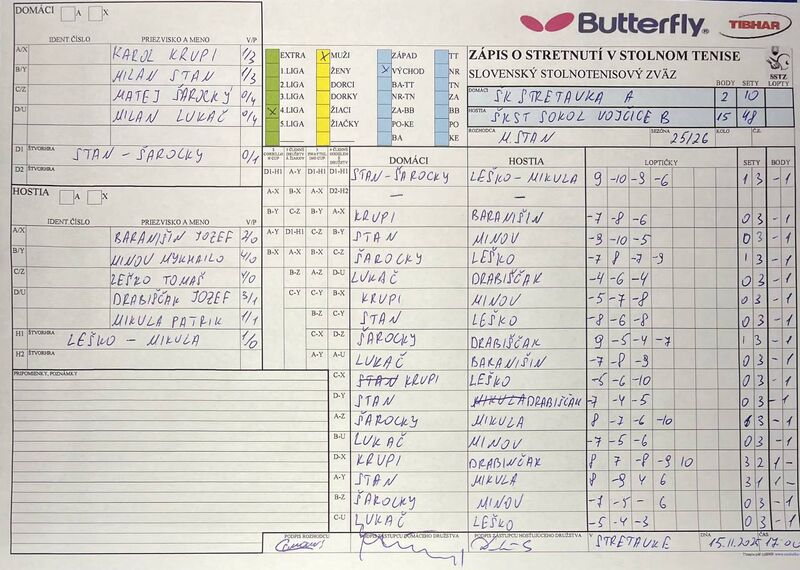 DOMÁCI A X
Butterfly
TIBHAR
IDENT.ČÍSLO PRIEZVISKO A MENO V/P
A/X KAROL KRUPI 1/3
B/Y MILAN STAN 1/3
C/Z MATEJ ŠAROCKY 0/4
D/U MILAN LUKAČ 0/4
D1 ŠTVORHRA STAN - ŠAROCKY 0/1
D2
EXTRA
1.LIGA
2.LIGA
3.LIGA
X 4.LIGA
5.LIGA
X MUŽI
ŽENY
DORCI
DORKY
ŽIACI
ŽIAČKY
ZÁPAD
X VÝCHOD
BA-TT
NR-TN
ZA-BB
PO-KE
BA
TT
NR
TN
ZA
BB
PO
KE
ZÁPIS O STRETNUTÍ V STOLNOM TENISE
SLOVENSKÝ STOLNOTENISOVÝ ZVÄZ
SSTZ
BODY SETY LOPTY
DOMÁCI ŠK STRETAVKA A 2 10
HOSTIA ŠKST SOKOL VOJČICE B 15 48
ROZHODCA M. STAN SEZÓNA 25/26 KOLO Č.Z.
HOSTIA A X
IDENT.ČÍSLO PRIEZVISKO A MENO V/P
A/X BARANIŠIN JOZEF 2/0
B/Y MINOV MYKHAILO 4/0
C/Z LEŠKO TOMAŠ 4/0
D/U DRABIŠČAK JOZEF 3/1
MIKULA PATRIK 1/1
H1 ŠTVORHRA LEŠKO - MIKULA 1/0
H2 ŠTVORHRA
PRIPOMIENKY, POZNÁMKY
DOMÁCI HOSTIA LOPTIČKY SETY BODY
D1-H1 A-Y D1-H1 A-X D1-H1 STAN - ŠAROCKY LEŠKO - MIKULA 9 -10 -9 -6 1 3 - 1
D2-H2 — —
B-Y C-Z B-Y A-X KRUPI BARANIŠIN -7 -8 -6 0 3 - 1
A-Y D1-H1 C-Z B-Y STAN MINOV -9 -10 -5 0 3 - 1
B-X A-X B-X C-Z ŠAROCKY LEŠKO -7 8 -7 -9 1 3 - 1
B-Z A-Z D-U LUKAČ DRABIŠČAK -4 -6 -4 0 3 - 1
C-Y C-Y B-X KRUPI MINOV -5 -7 -8 0 3 - 1
B-Z C-Y STAN LEŠKO -8 -6 -8 0 3 - 1
C-X D-Z ŠAROCKY DRABIŠČAK 9 -5 -4 -7 1 3 - 1
A-Y A-U LUKAČ BARANIŠIN -7 -8 -9 0 3 - 1
C-X STAN KRUPI LEŠKO -5 -6 -10 0 3 - 1
D-Y STAN MIKULA DRABIŠČAK -7 -4 -5 0 3 - 1
A-Z ŠAROCKY MIKULA 8 -7 -6 -10 3 - 1
B-U LUKAČ MINOV -7 -5 -6 0 3 - 1
D-X KRUPI DRABINČAK 8 7 -8 -9 10 3 2 1 -
A-Y STAN MIKULA 8 -9 4 6 3 1 1 -
B-Z ŠAROCKY MINOV -7 -5 - 6 0 3 - 1
C-U LUKAČ LEŠKO -5 -4 -3 0 3 - 1
PODPIS ROZHODCU
PODPIS ZÁSTUPCU DOMÁCEHO DRUŽSTVA
PODPIS ZÁSTUPCU HOSŤUJÚCEHO DRUŽSTVA
V STRETAVKE DNA 15.11.2025 ČAS 17.00